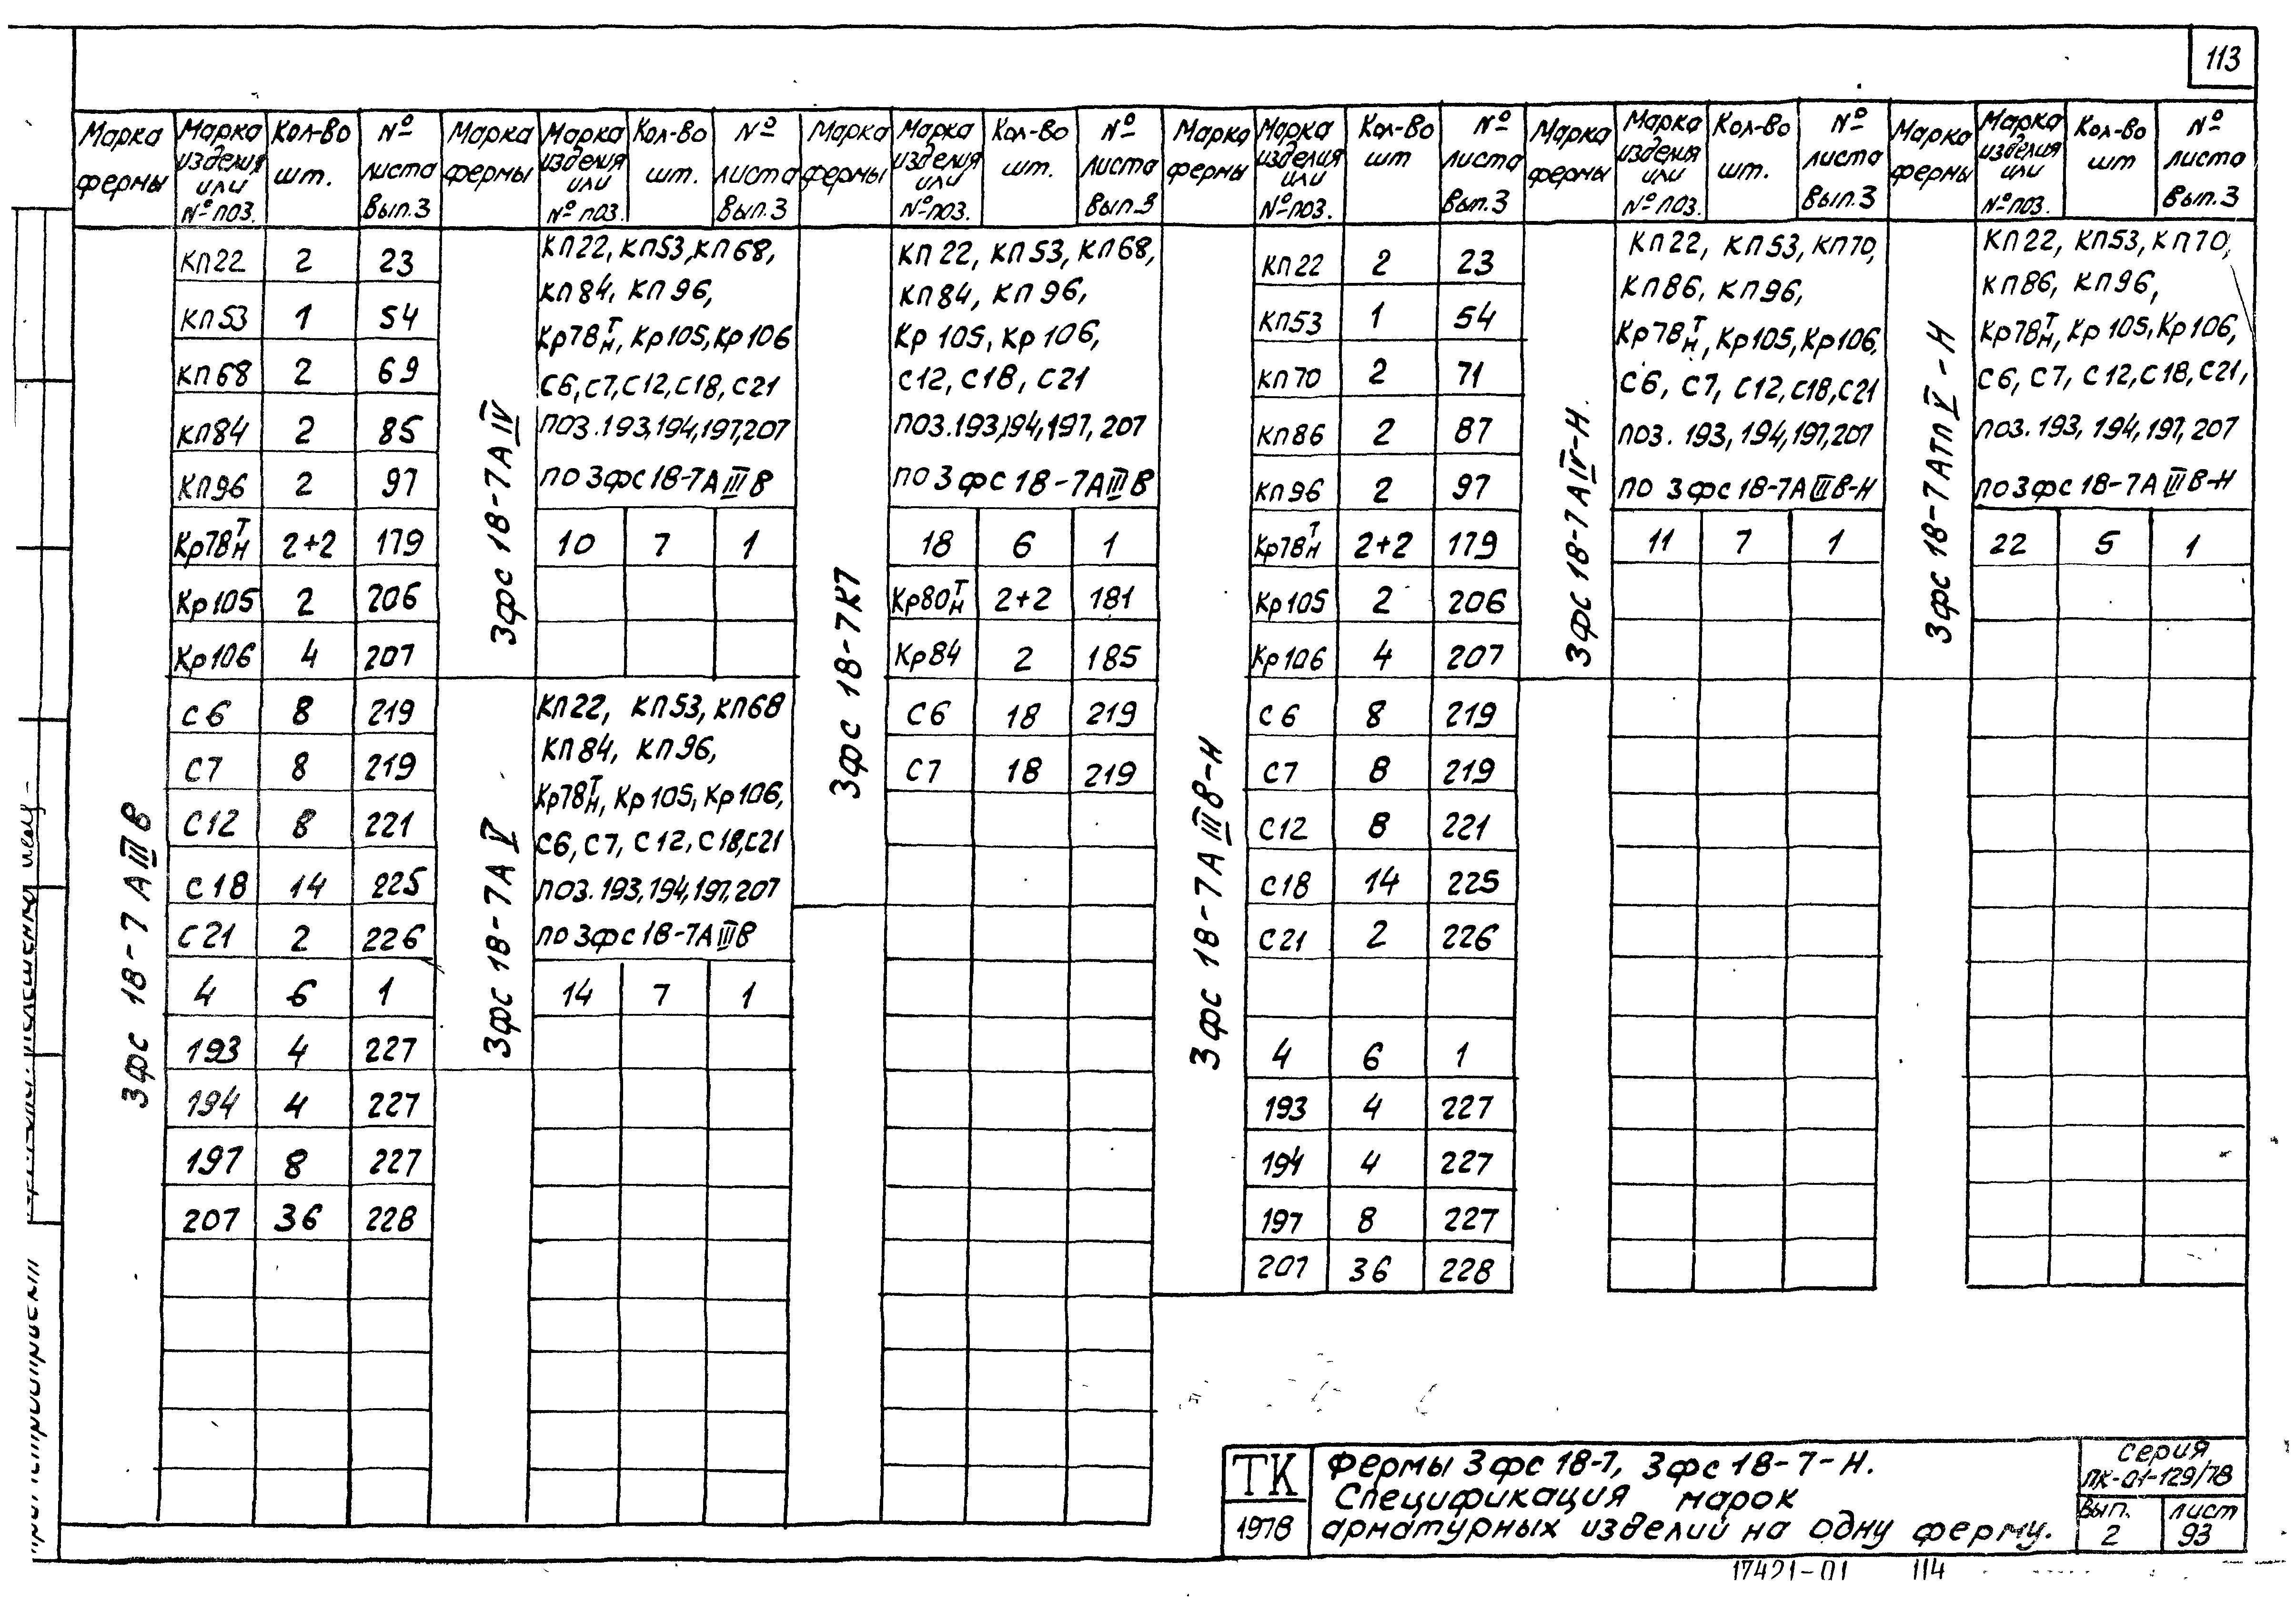 113
Марка фермы | Марка изделия или № поз. | Кол-во шт. | № листа Вып.3
3фс 18-7 АIIIв
КП22 2 23
КП53 1 54
КП68 2 69
КП84 2 85
КП96 2 97
Кр78Тн 2+2 179
Кр105 2 206
Кр106 4 207
С6 8 219
С7 8 219
С12 8 221
С18 14 225
С21 2 226
4 6 1
193 4 227
194 4 227
197 8 227
207 36 228
Марка фермы | Марка изделия или № поз. | Кол-во шт. | № листа Вып.3
3фс 18-7АIV
КП22, КП53, КП68,
КП84, КП96,
Кр78Тн, Кр105, Кр106
С6, С7, С12, С18, С21
поз.193,194,197,207
по 3фс18-7АIIIв
10 7 1
3фс 18-7АV
КП22, КП53, КП68
КП84, КП96,
Кр78Тн, Кр105, Кр106,
С6, С7, С12, С18, С21
поз.193,194,197,207
по 3фс18-7АIIIв
14 7 1
Марка фермы | Марка изделия или № поз. | Кол-во шт. | № листа Вып.3
3фс 18-7К7
КП22, КП53, КП68,
КП84, КП96,
Кр105, Кр106,
С12, С18, С21
поз.193,194,197,207
по 3фс18-7АIIIв
18 6 1
Кр80Тн 2+2 181
Кр84 2 185
С6 18 219
С7 18 219
Марка фермы | Марка изделия или № поз. | Кол-во шт | № листа Вып.3
3фс 18-7АIIIв-Н
КП22 2 23
КП53 1 54
КП70 2 71
КП86 2 87
КП96 2 97
Кр78Тн 2+2 179
Кр105 2 206
Кр106 4 207
С6 8 219
С7 8 219
С12 8 221
С18 14 225
С21 2 226
4 6 1
193 4 227
194 4 227
197 8 227
207 36 228
Марка фермы | Марка изделия или № поз. | Кол-во шт. | № листа Вып.3
3фс 18-7АIV-Н.
КП22, КП53, КП70,
КП86, КП96,
Кр78Тн, Кр105, Кр106,
С6, С7, С12, С18, С21
поз. 193, 194, 197, 207
по 3фс18-7АIIIв-Н
11 7 1
Марка фермы | Марка изделия или № поз. | Кол-во шт | № листа Вып.3
3фс 18-7АтпV-Н
КП22, КП53, КП70,
КП86, КП96,
Кр78Тн, Кр105, Кр106,
С6, С7, С12, С18, С21,
поз. 193, 194, 197, 207
по 3фс18-7АIIIв-Н
22 5 1
ТК
1978
Фермы 3фс18-7, 3фс18-7-Н.
Спецификация марок
арматурных изделий на одну ферму.
серия
ПК-01-129/78
Вып. 2
лист 93
17421-01 114